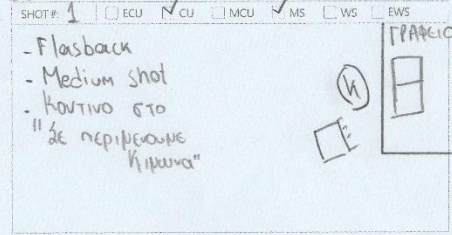 SHOT#: 1 ECU CU MCU MS WS EWS
- Flasback
- Medium shot
- Κοντινο στο
"Σε περιμενουμε
Κιμωνα"
Κ
ΓΡΑΦΕΙΟ